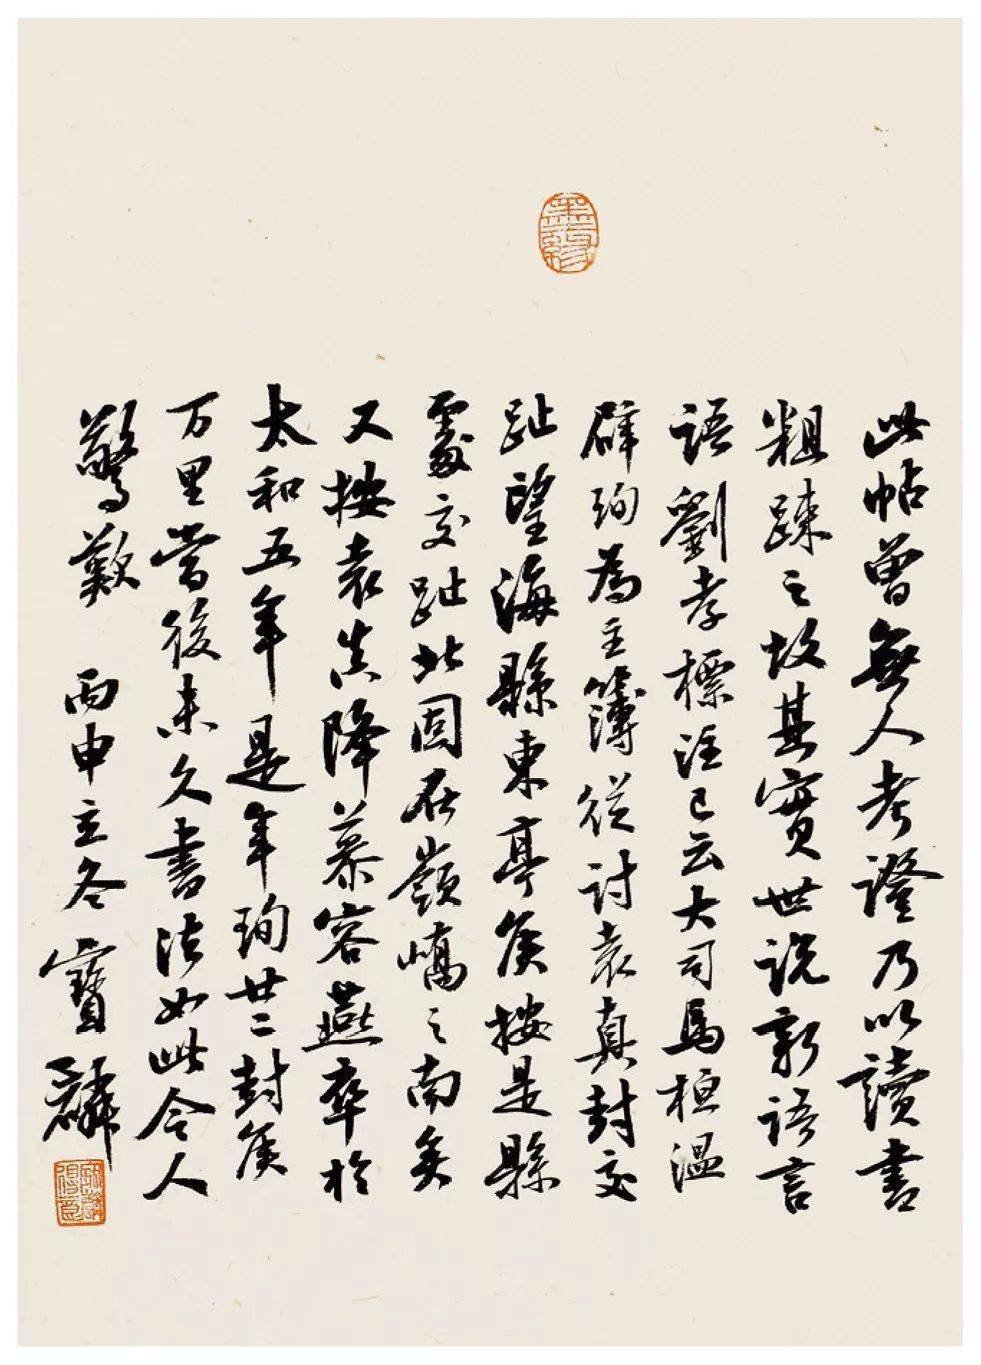 此帖曾無人考證乃以讀書
粗踈之故其實世說新語言
語劉孝標注已云大司馬桓溫
辟珣為主簿從討袁真封交
趾望海縣東亭侯按是縣
處交趾北固在嶺嶠之南矣
又按袁真降慕容燕卒於
太和五年是年珣廿二封侯
万里嘗後未久書法如此令人
驚歎 丙申立冬 寶麟